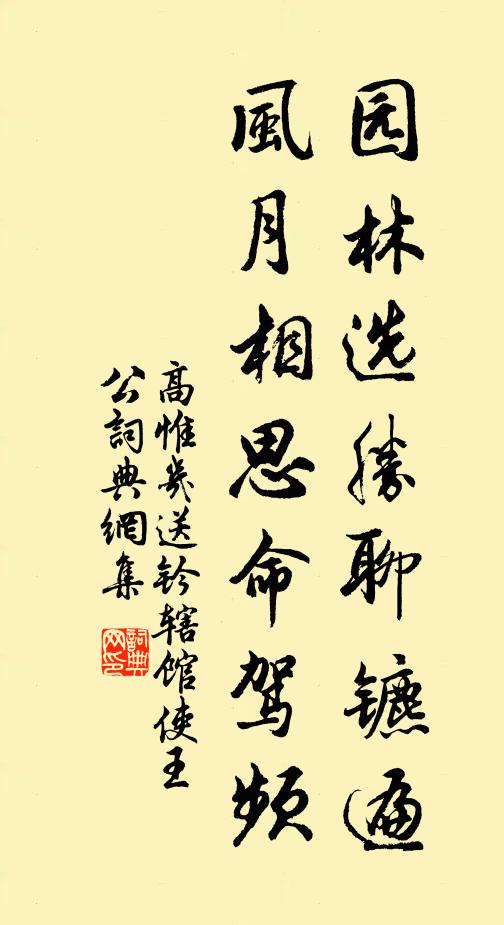 园林选勝聊镳遍
風月相思命驾频
高惟幾送鈐辖馆使王
公詞典網集
詞典网印